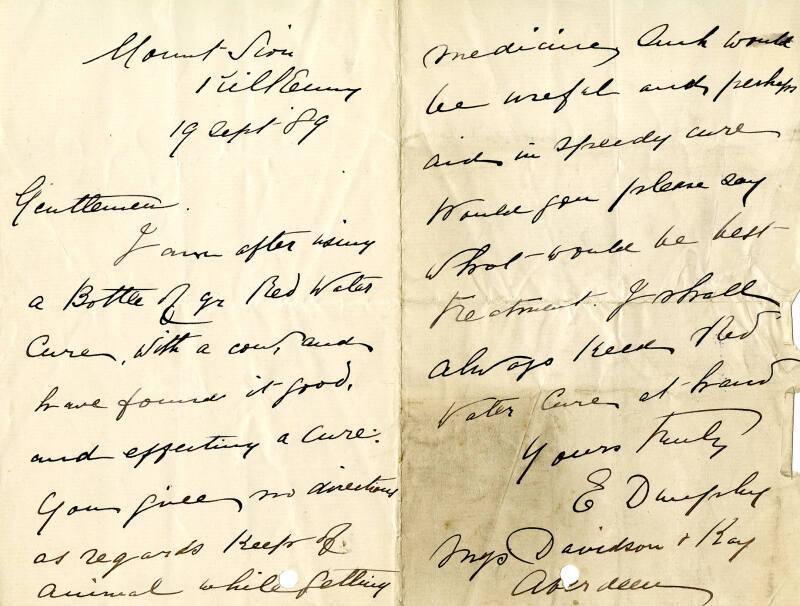 Mount Sion
Kilkenny
19 Sept '89
Gentlemen.
I am after using
a Bottle of yr Red Water
Cure, with a cow, and
have found it good,
and effecting a cure.
You give no directions
as regards Keep of
animal while getting
medicine, such would
be useful and perhaps
aid in speedy cure
Would you please say
what would be best
treatment. I shall
always keep Red
Water Cure at hand
Yours truly
E Dunphy
Davidson & Kay
Aberdeen